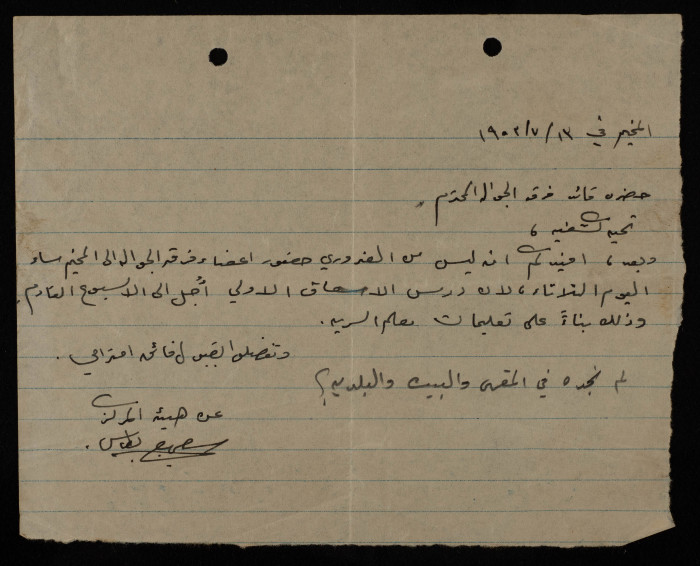 المخيم في ١٣/٧/١٩٥٢
حضرة قائد فرقة الجوالة المحترم
تحية كشفية ،
وبعد ، افيدكم انه ليس من الضروري حضور اعضاء فرقة الجوالة الى المخيم مساء
اليوم الثلاثاء ، لان درس الاسعاف الاولي أُجل الى الاسبوع القادم
وذلك بناءً على تعليمات معلم السرية .
وتفضلوا بقبول فائق احترامي .
لم نجده في المقهى والبيت والبلدية ؟
عن هيئة المركز